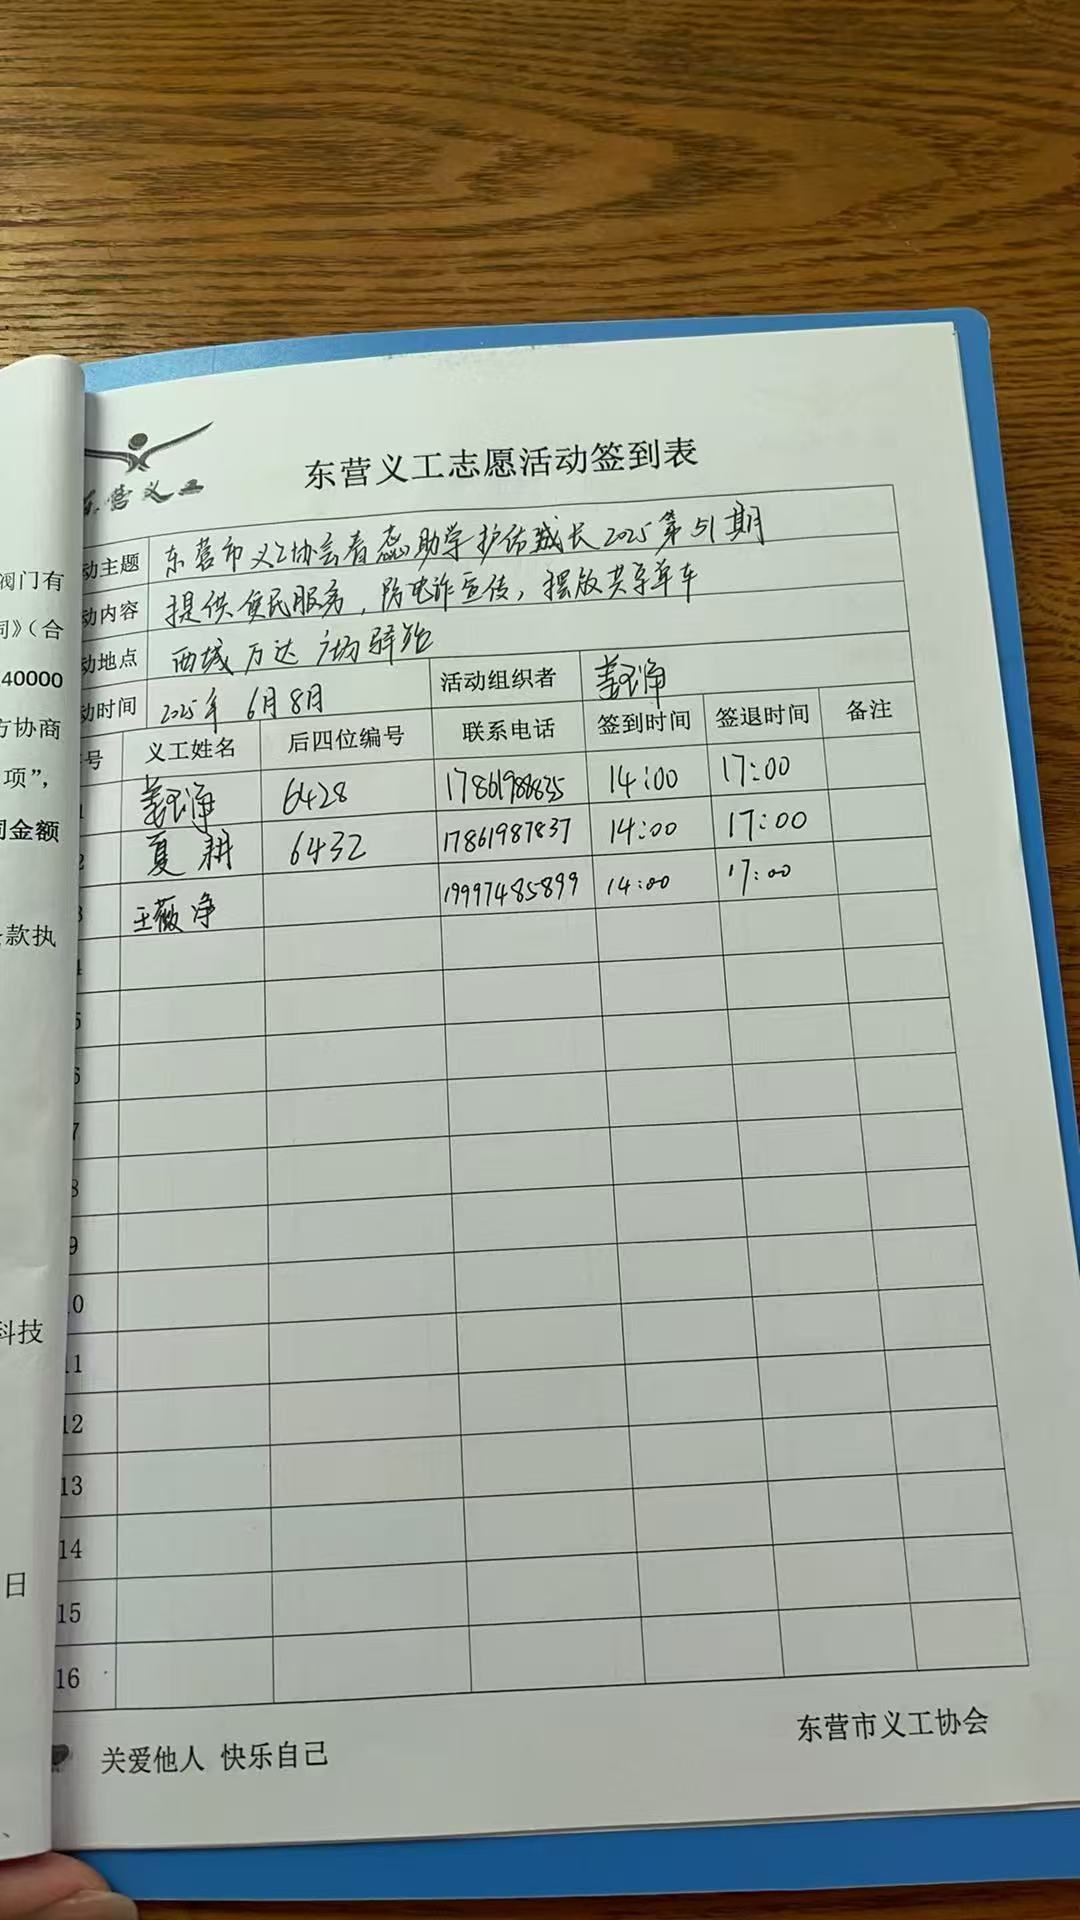 东营义工
东营义工志愿活动签到表
动主题 东营市义工协会春蕊助学护伤成长2025第51期
动内容 提供便民服务,防电诈宣传,摆放共享单车
动地点 西城万达广场驿站
动时间 2025年 6月8日 活动组织者
号 义工姓名 后四位编号 联系电话 签到时间 签退时间 备注
1 6428 17861988835 14:00 17:00
2 夏耕 6432 17861987837 14:00 17:00
3 王薇净 19997485899 14:00 17:00
4
5
6
7
8
9
10
11
12
13
14
15
16
关爱他人 快乐自己
东营市义工协会
阀门有
同》(合
40000
方协商
项”,
同金额
款执
科技
日